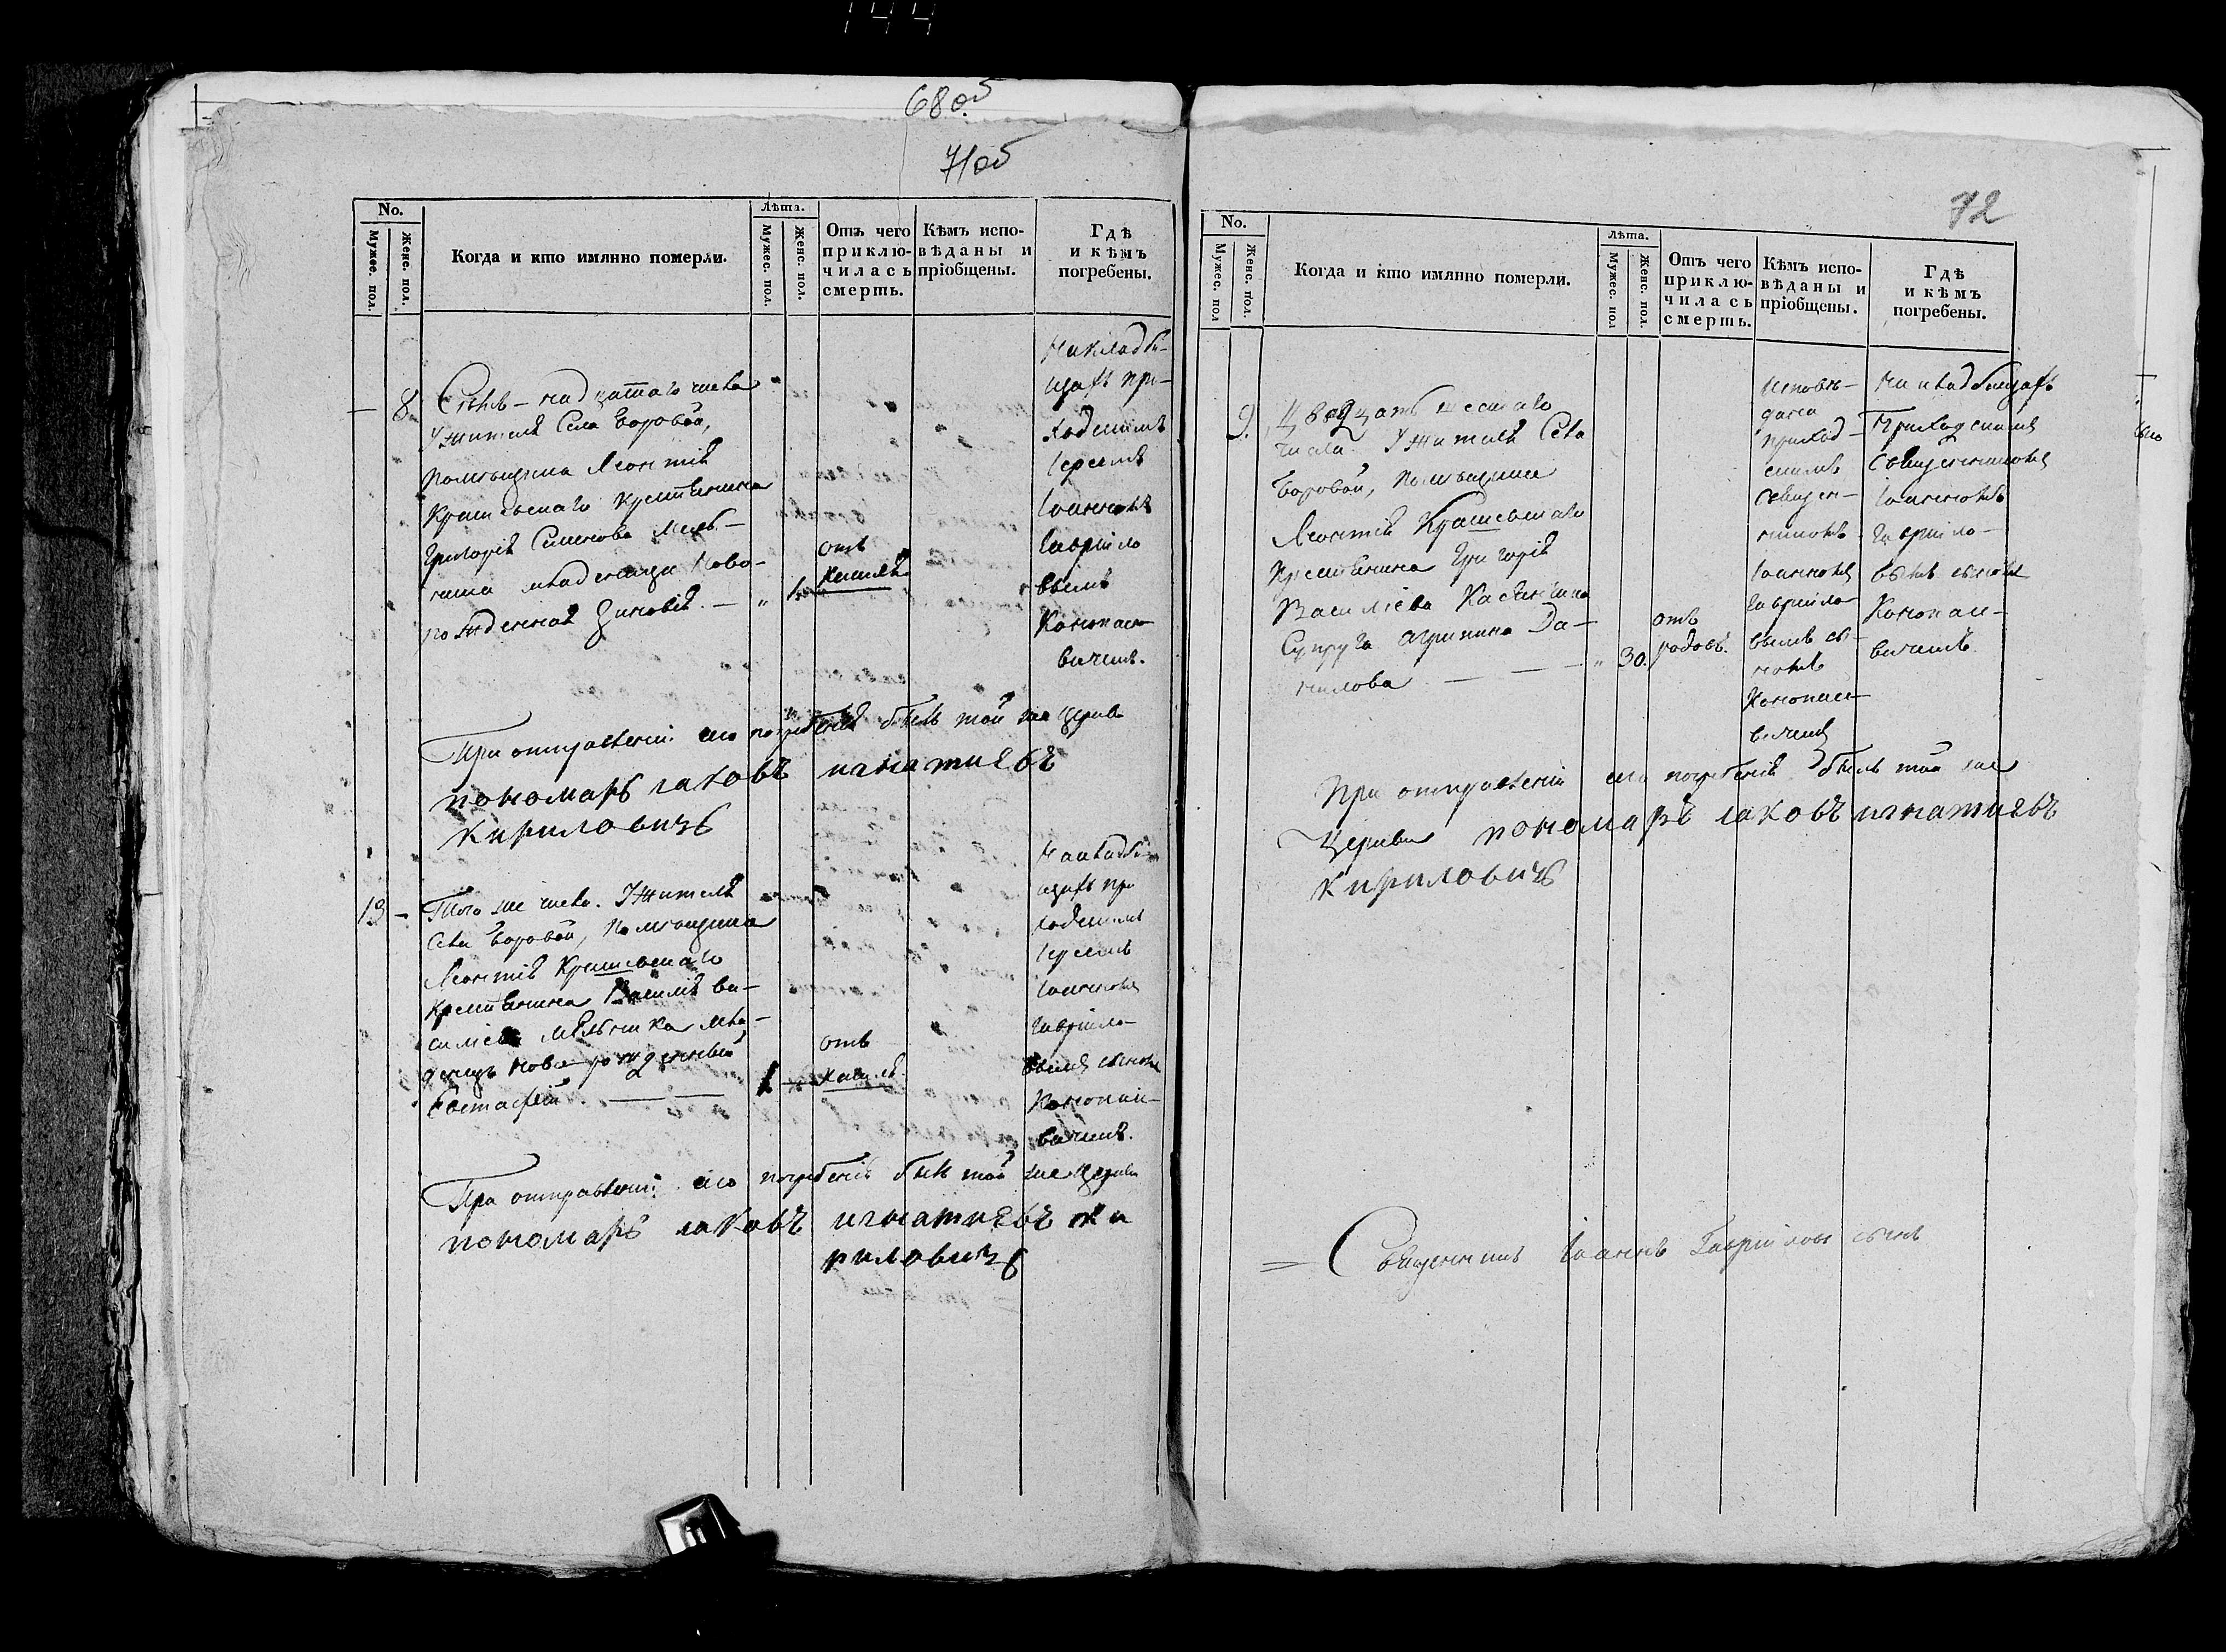 144
68об
71об
No.
Мужес. пол.
Женс. пол.
Когда и кто имянно померли.
Лѣта.
Мужес. пол.
Женс. пол.
Отъ чего приклю-чилась смерть.
Кѣмъ испо-вѣданы и пріобщены.
Гдѣ и кѣмъ погребены.
8.
надцатаго числа
У жителя Села Боровой,
помѣщика Леонтія
крестьянина
Григорія Семенова Мель-
ника младеница Ново-
рожденная Зиновія. — „ 1.
отъ
кашля
На кладби-
щахъ при-
ходскимъ
Іереемъ
Іоанномъ
Гавріило
вымъ
Конопась
вичемъ.
При отправленіи его погребенія былъ той же церкви
пономарь іаковъ игнатиевъ
кириловичь
13 —
Того же числа. У жителя
Села Боровой, помѣщика
Леонтія
крестьянина Василія Ва-
силіева Мельника мла-
денецъ новорожденный
Евстафій. — — 1 —
отъ
кашля.
На кладби-
щахъ при
ходскимъ
Іереемъ
Іоанномъ
Гавріило-
вымъ сыномъ
Конопась-
вичемъ.
При отправленіи его погребенія былъ той же Церкви
пономарь іаковъ игнатиевъ ки
риловичь
72
No.
Мужес. пол
Женс. пол.
Когда и кто имянно померли.
Лѣта.
Мужес. пол
Женс. пол.
Отъ чего приклю-чилась смерть.
Кѣмъ испо-вѣданы и пріобщены.
Гдѣ и кѣмъ погребены.
9.
Двадцать шестаго
числа. У жителя Села
Боровой, помѣщика
Леонтія
крестьянина Григорія
Василіева
Супруга Агрипина Да-
нилова — — „ 30.
отъ
родовъ.
Исповѣ-
дана
приход-
скимъ
священ-
никомъ
Іоанномъ
Гавріило-
вымъ сы-
номъ
Конопась-
вичемъ
На кладбищахъ
Приходскимъ
Священникомъ
Іоанномъ
Гавріило-
вымъ сыномъ
Конопась-
вичемъ.
При отправленіи его погребенія былъ той же
Церкви пономарь іаковъ игнатиевъ
кириловичь
Священникъ Іоаннъ Гавріиловъ сынъ